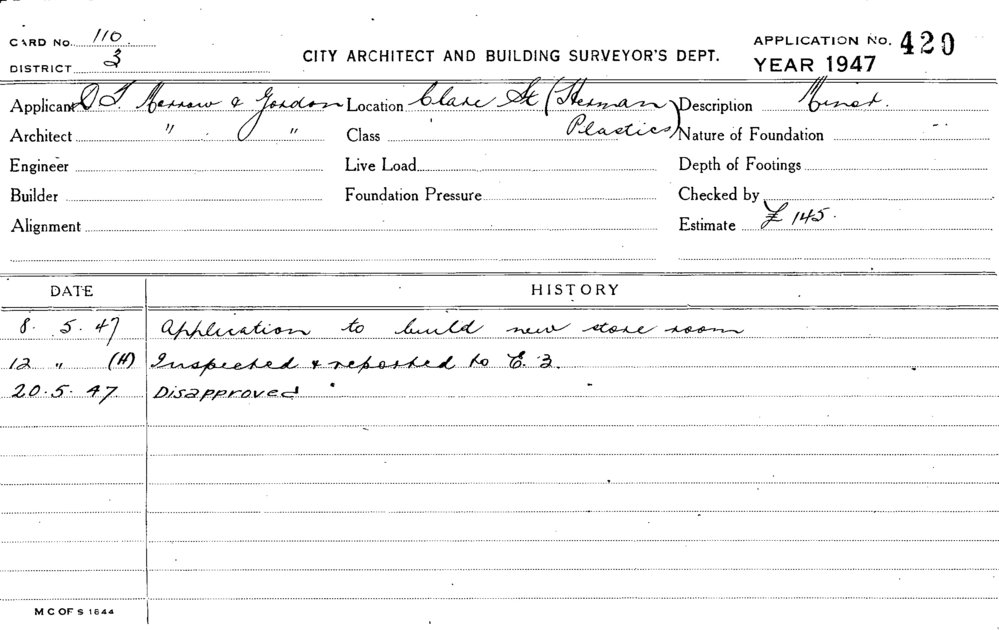 CARD NO. 110
DISTRICT 3
CITY ARCHITECT AND BUILDING SURVEYOR'S DEPT.
APPLICATION NO. 420
YEAR 1947
Applicant D T. Morrow & Gordon Location Clare St (Herman Plastics) Description Minor.
Architect " " Class Nature of Foundation
Engineer Live Load Depth of Footings
Builder Foundation Pressure Checked by
Alignment Estimate £145.
DATE HISTORY
8. 5. 47 Application to build new store room
12 " (H) Inspected & reported to E. 3.
20.5.47 Disapproved
M C OF S 1644